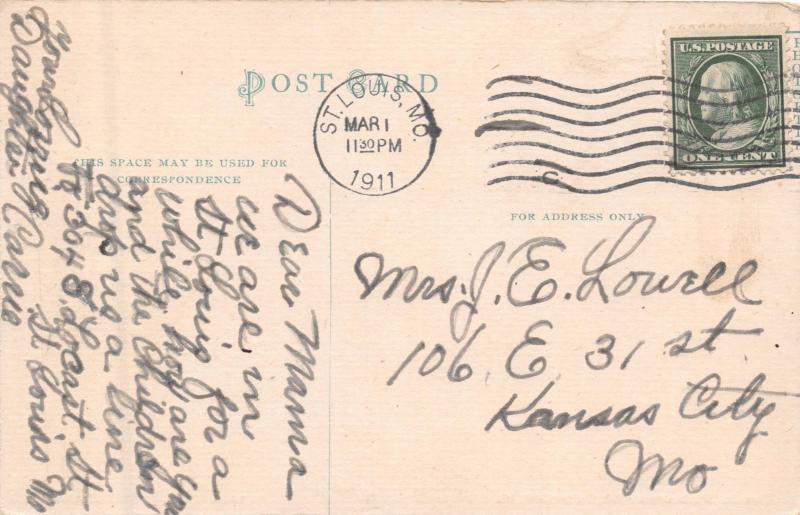 POST CARD
THIS SPACE MAY BE USED FOR
CORRESPONDENCE
ST. LOUIS, MO.
MAR 1
11 30 PM
1911
U.S. POSTAGE
ONE CENT
FOR ADDRESS ONLY
Mrs. J. E. Lowell
106 E 31 st
Kansas City
Mo
Dear Mama
we are in
St Louis for a
while how are you
and the Children
drop us a line
to 304 S. St
St Louis Mo
your loving
Daughter